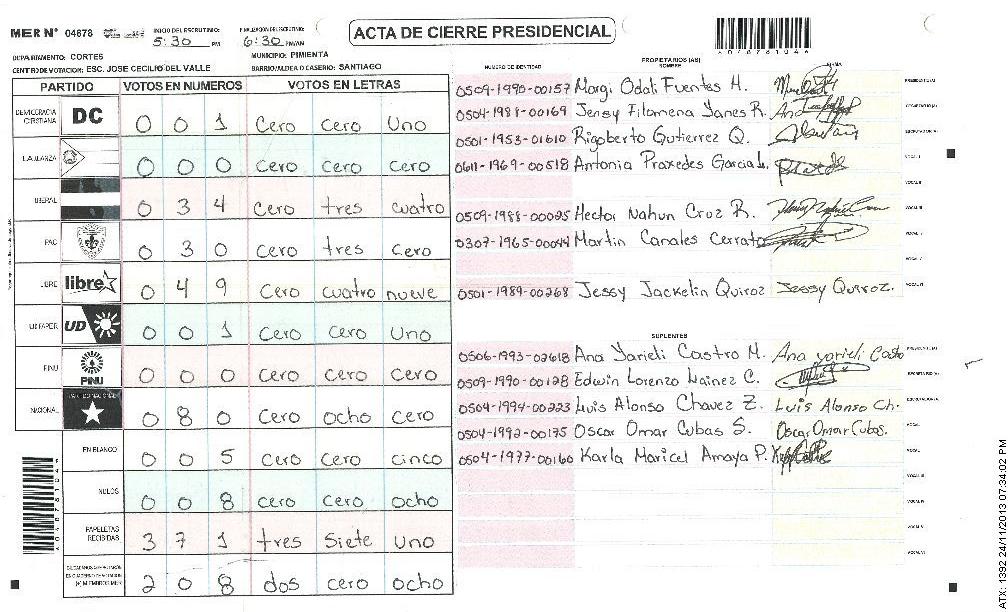 MER N° 04878 INICIO DEL ESCRUTINIO: 5:30 PM FINALIZACION DEL ESCRUTINIO: 6:30 PM/AM
ACTA DE CIERRE PRESIDENCIAL
A04878104A
DEPARTAMENTO: CORTES MUNICIPIO: PIMIENTA
CENTRO DE VOTACION: ESC. JOSE CECILIO DEL VALLE BARRIO/ALDEA O CASERIO: SANTIAGO
PARTIDO VOTOS EN NUMEROS VOTOS EN LETRAS
DEMOCRACIA CRISTIANA DC 0 0 1 Cero Cero Uno
LA ALIANZA 0 0 0 Cero Cero Cero
LIBERAL 0 3 4 Cero tres cuatro
PAC 0 3 0 Cero tres Cero
LIBRE libre 0 4 9 Cero cuatro nueve
UD FAPER UD 0 0 1 Cero Cero Uno
PINU PINU 0 0 0 Cero Cero Cero
NACIONAL PARTIDO NACIONAL 0 8 0 Cero ocho cero
EN BLANCO 0 0 5 Cero Cero cinco
NULOS 0 0 8 Cero Cero ocho
PAPELETAS RECIBIDAS 3 7 1 tres Siete Uno
2 0 8 dos cero ocho
NUMERO DE IDENTIDAD PROPIETARIOS (AS) NOMBRE FIRMA
0509-1990-00157 Margi Odali Fuentes H. PRESIDENTE(A)
0504-1988-00169 Jensy Filomena Yanes R. SECRETARIO (A)
0501-1953-01610 Rigoberto Gutierrez Q. ESCRUTADOR(A)
0611-1969-00518 Antonia Praxedes Garcia L. VOCAL I
VOCAL II
0509-1988-00025 Hector Nahun Cruz R. VOCAL III
0307-1965-00044 Martin Canales Cerrato
VOCAL V
0501-1989-00268 Jessy Jackelin Quiroz Jessy Quiroz.
SUPLENTES
0506-1993-02618 Ana Yarieli Castro M. Ana yarieli Casto PRESIDENTE(A)
0509-1990-00128 Edwin Lorenzo Lainez C. SECRETARIO(A)
0504-1994-00223 Luis Alonso Chavez Z. Luis Alonso Ch. ESCRUTADOR/A
0504-1992-00175 Oscar Omar Cubas S. Oscar Omar Cubas.
0504-1977-00160 Karla Maricel Amaya P.
A04878104A
ATX: 1392 24/11/2013 07:34:02 PM